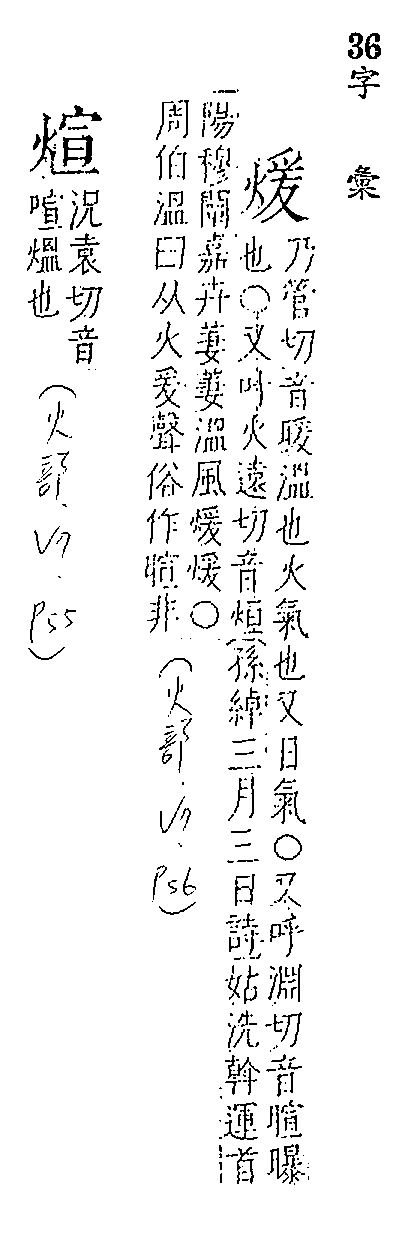 36
字彙
煖
乃管切音暖溫也火氣也又日氣○又呼淵切音暄曝
也○又叶火遠切音烜孫綽三月三日詩姑洗斡運首
陽穆闡嘉卉萋萋溫風煖煖○
周伯溫曰从火爰聲俗作暄非
(火部.V7.P56)
煊
況袁切音
喧熅也
(火部.V7.P55)